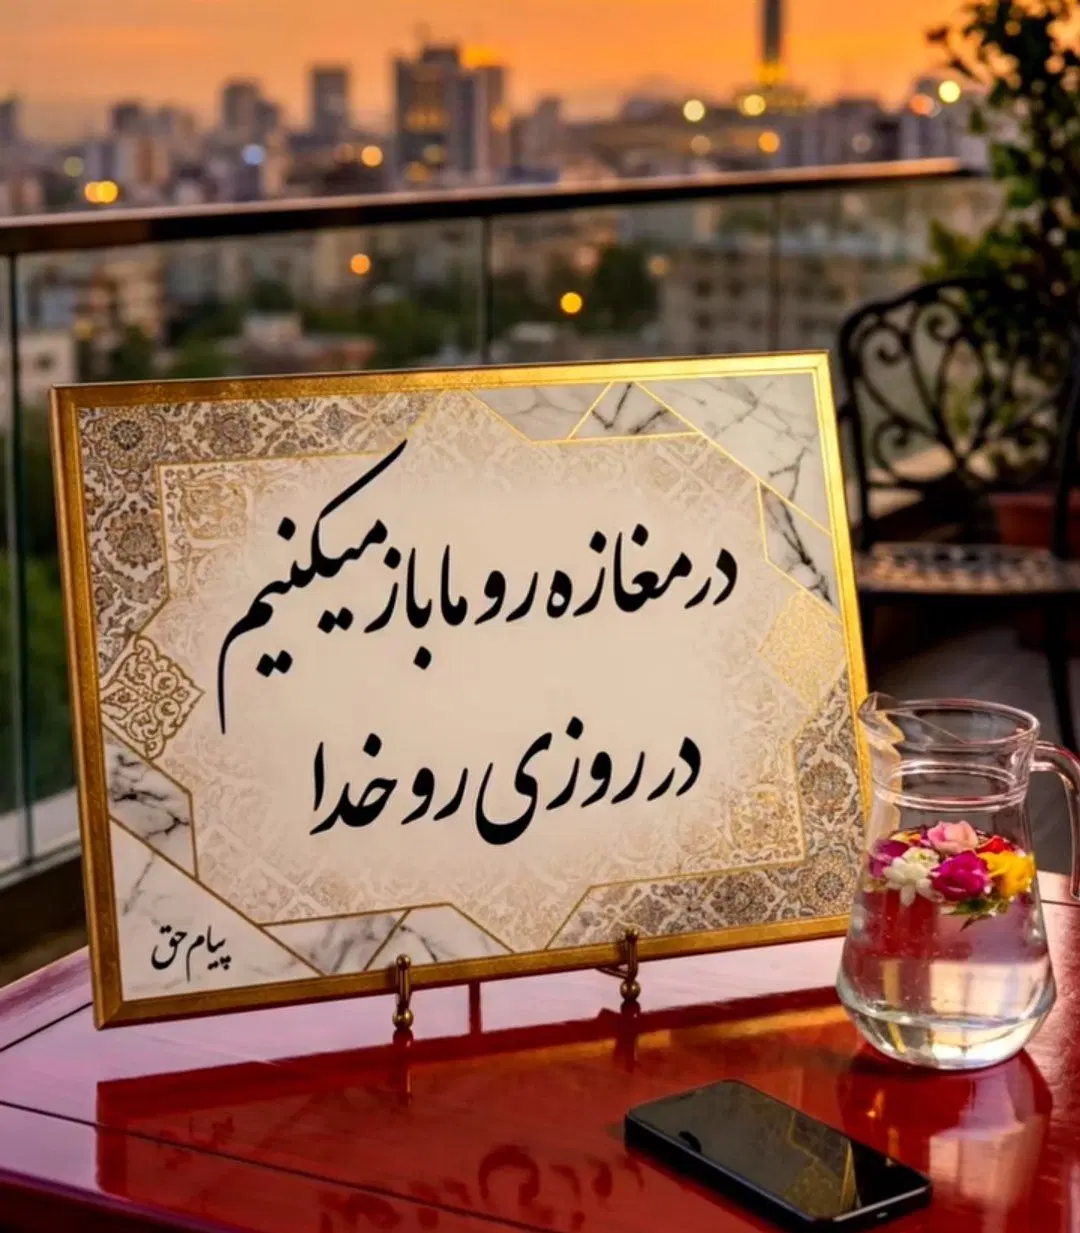 در مغازه رو ما باز میکنیم
در روزی رو خدا
پیام حق